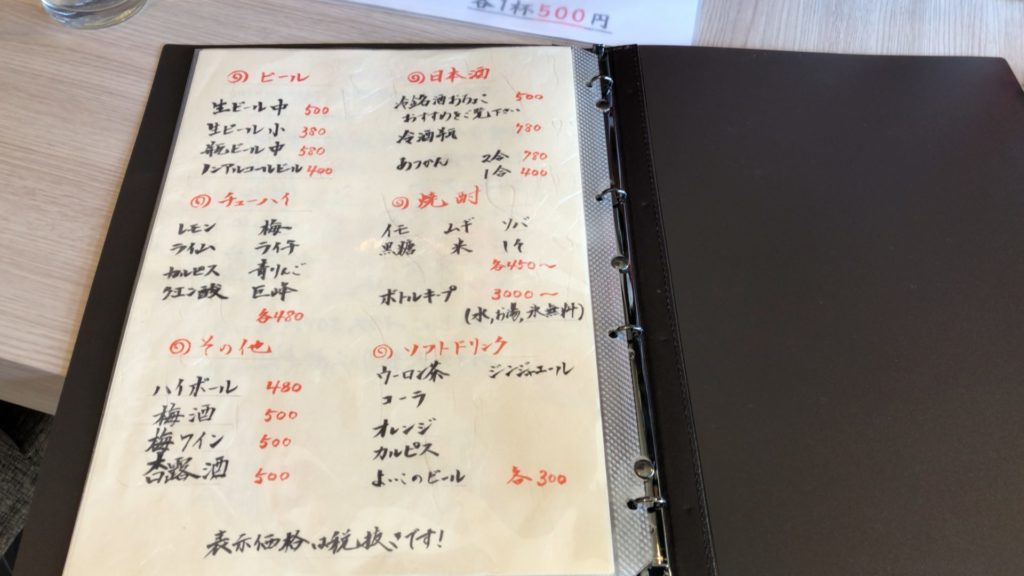 各1杯500円
ビール
生ビール中 500
生ビール小 380
瓶ビール中 580
ノンアルコールビール 400
チューハイ
レモン 梅
ライム ライチ
カルピス 青りんご
クエン酸 巨峰
各480
その他
ハイボール 480
梅酒 500
梅ワイン 500
杏露酒 500
日本酒
冷銘酒おちょこ 500
おすすめをご覧下さい
冷酒瓶 780
あつかん 2合 780
1合 400
焼酎
イモ ムギ ソバ
黒糖 米
各450〜
ボトルキープ 3000〜
(水,お湯,氷無料)
ソフトドリンク
ウーロン茶 ジンジャエール
コーラ
オレンジ
カルピス
よいこのビール 各300
表示価格は税抜きです!